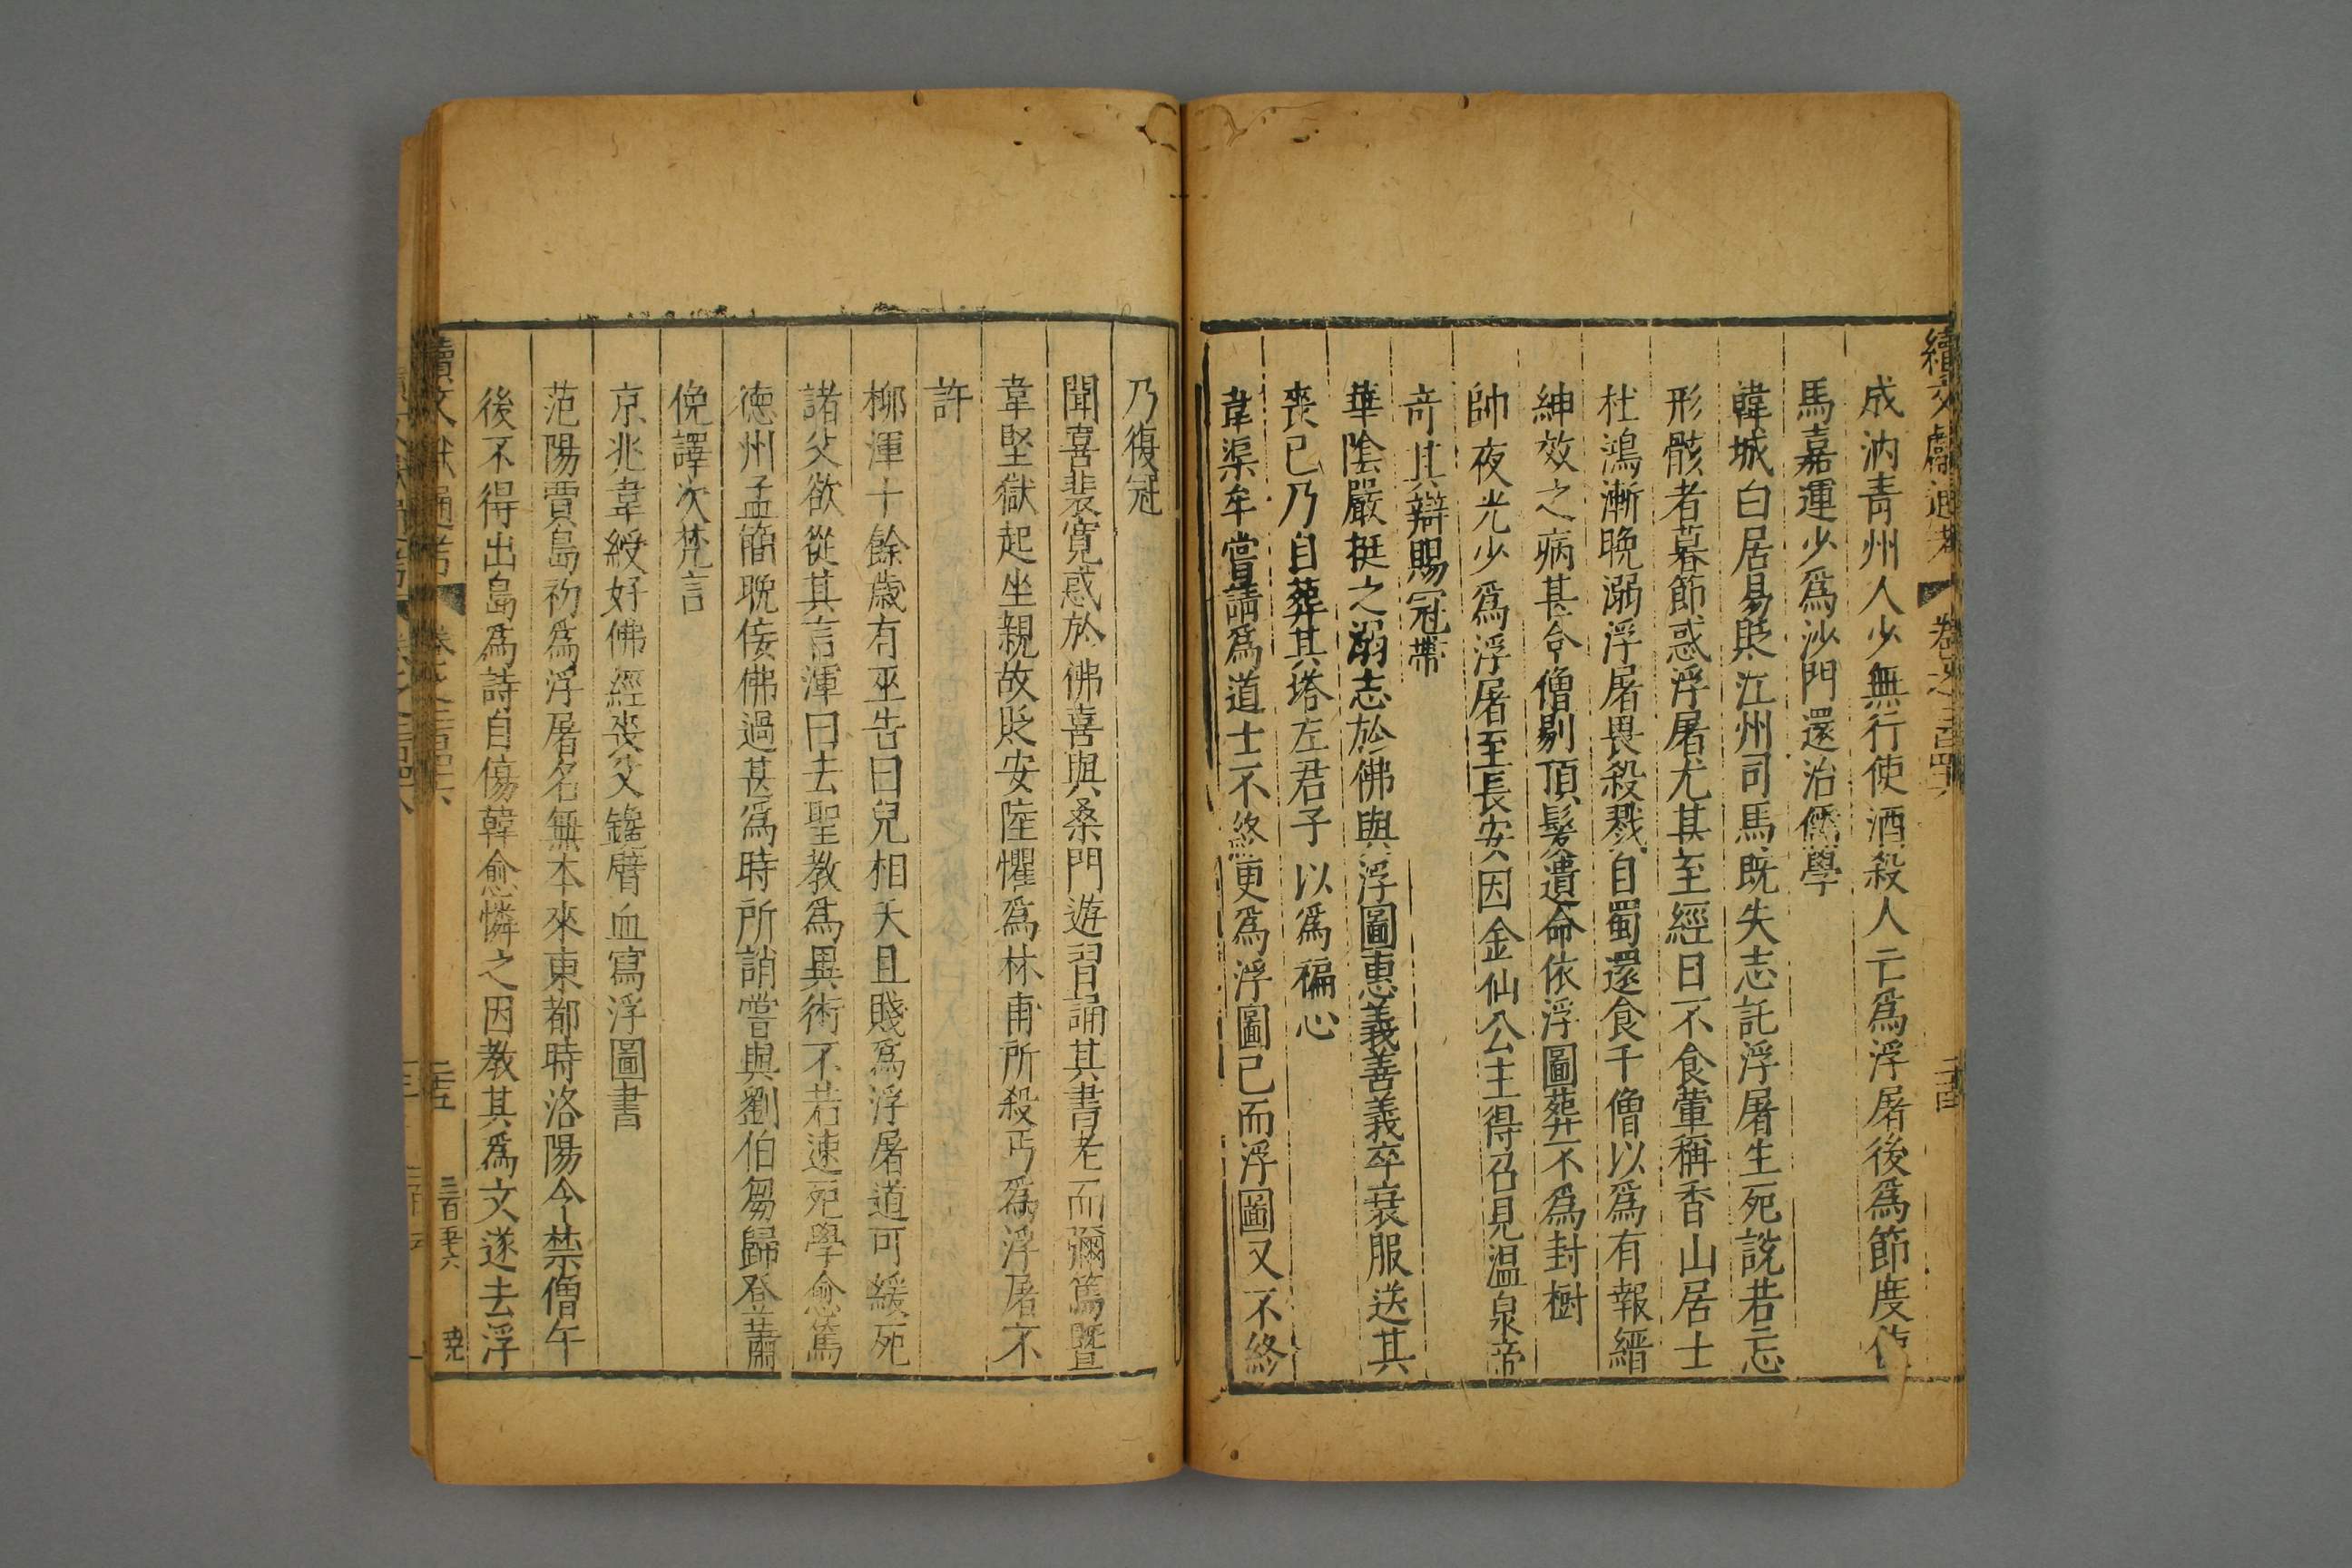 成汭青州人少無行使酒殺人亡爲浮屠後爲節度使
馬嘉運少爲沙門還治儒學
韓城白居易貶江州司馬既失志託浮屠生死說若忘
形骸者暮節惑浮屠尤甚至經日不食葷稱香山居士
杜鴻漸晚溺浮屠畏殺戮自蜀還食千僧以爲有報縉
紳效之病甚令僧剔頂髮遺命依浮圖葬不爲封樹
帥夜光少爲浮屠至長安因金仙公主得召見温泉帝
奇其辯賜冠帶
華陰嚴挺之溺志於佛與浮圖惠義善義卒衰服送其
喪已乃自葬其塔左君子以爲褊心
韋渠牟嘗請爲道士不終更爲浮圖已而浮圖又不終
乃復冠
聞喜裴寬惑於佛喜與桑門遊習誦其書老而彌篤曁
韋堅獄起坐親故貶安陸懼爲林甫所殺丐爲浮屠不
許
柳渾十餘歲有巫告曰兒相夭且賤爲浮屠道可緩死
諸父欲從其言渾曰去聖教爲異術不若速死學愈篤
德州孟簡晚佞佛過甚爲時所誚嘗與劉伯芻歸登蕭
俛譯次梵言
京兆韋綬好佛經喪父鑱臂血寫浮圖書
范陽賈島初爲浮屠名無本來東都時洛陽令禁僧午
後不得出島爲詩自傷韓愈憐之因教其爲文遂去浮
續文獻通考
卷之二百四十六
二十五